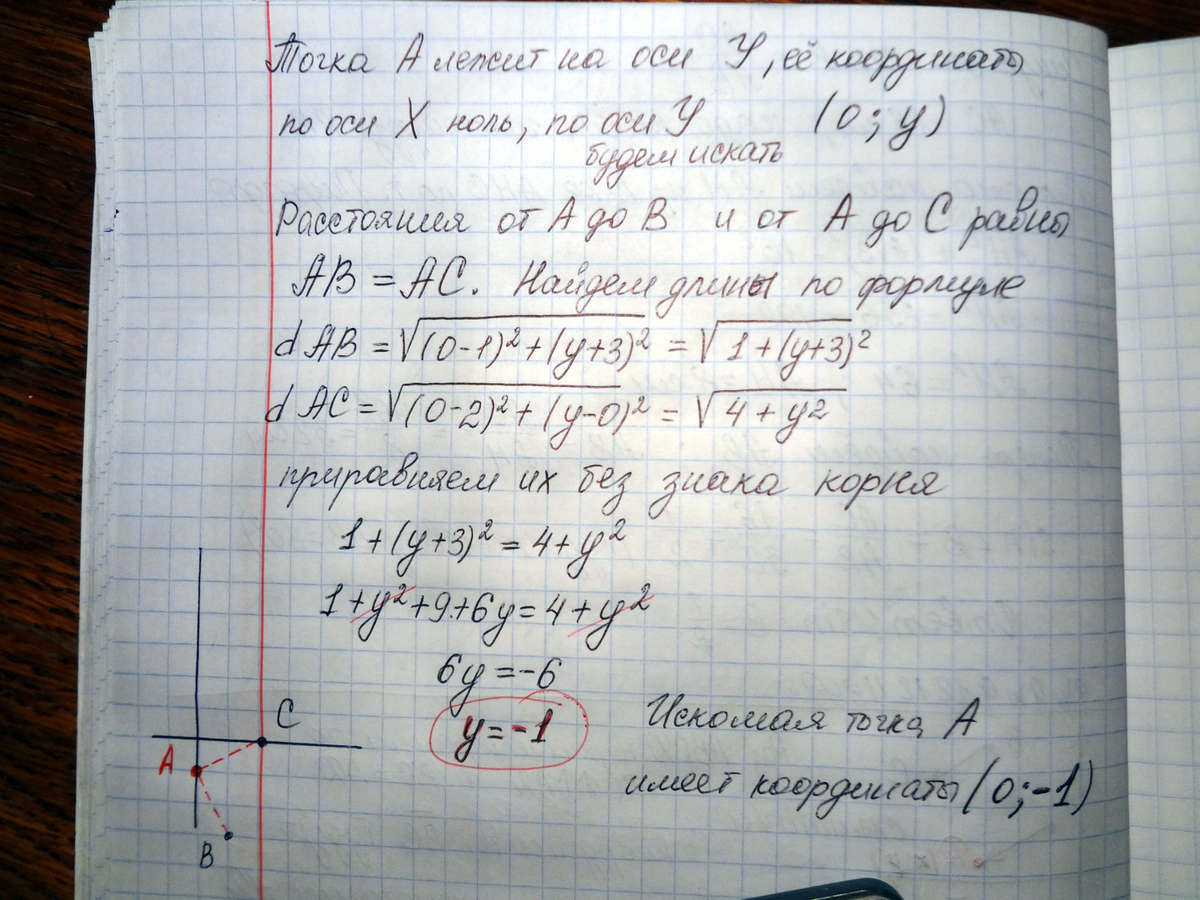 Точка А лежит на оси У, её координаты
по оси Х ноль, по оси У (0; у)
будем искать
Расстояния от А до В и от А до С равны
АВ = АС. Найдем длины по формуле
d АВ = √(0-1)² + (у+3)² = √1 + (у+3)²
d АС = √(0-2)² + (у-0)² = √4 + у²
приравняем их без знака корня
1 + (у+3)² = 4 + у²
1 + у² + 9 + 6у = 4 + у²
6у = -6
у = -1
Искомая точка А
имеет координаты (0; -1)
С
А
В